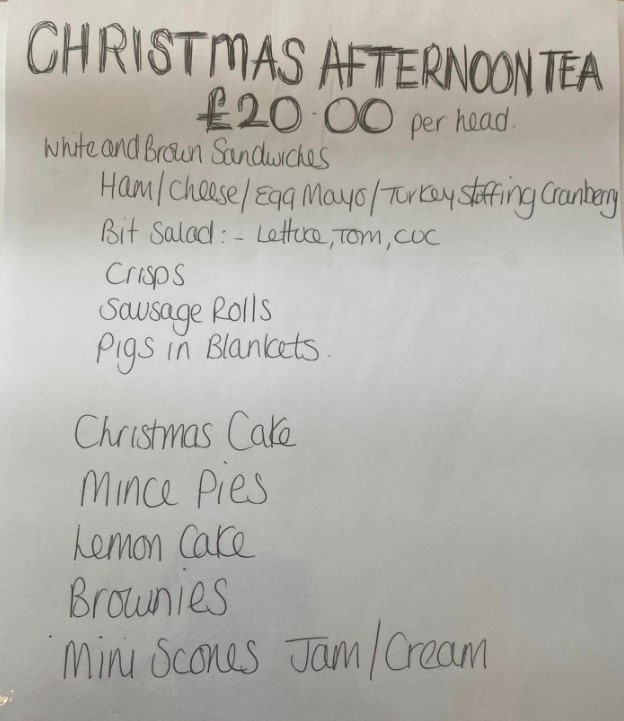 CHRISTMAS AFTERNOON TEA
£20.00 per head.
White and Brown Sandwiches
Ham/Cheese/Egg Mayo/Turkey Stuffing Cranberry
Bit Salad:- Lettuce, Tom, cuc
Crisps
Sausage Rolls
Pigs in Blankets.
Christmas Cake
Mince Pies
Lemon Cake
Brownies
Mini Scones Jam/Cream